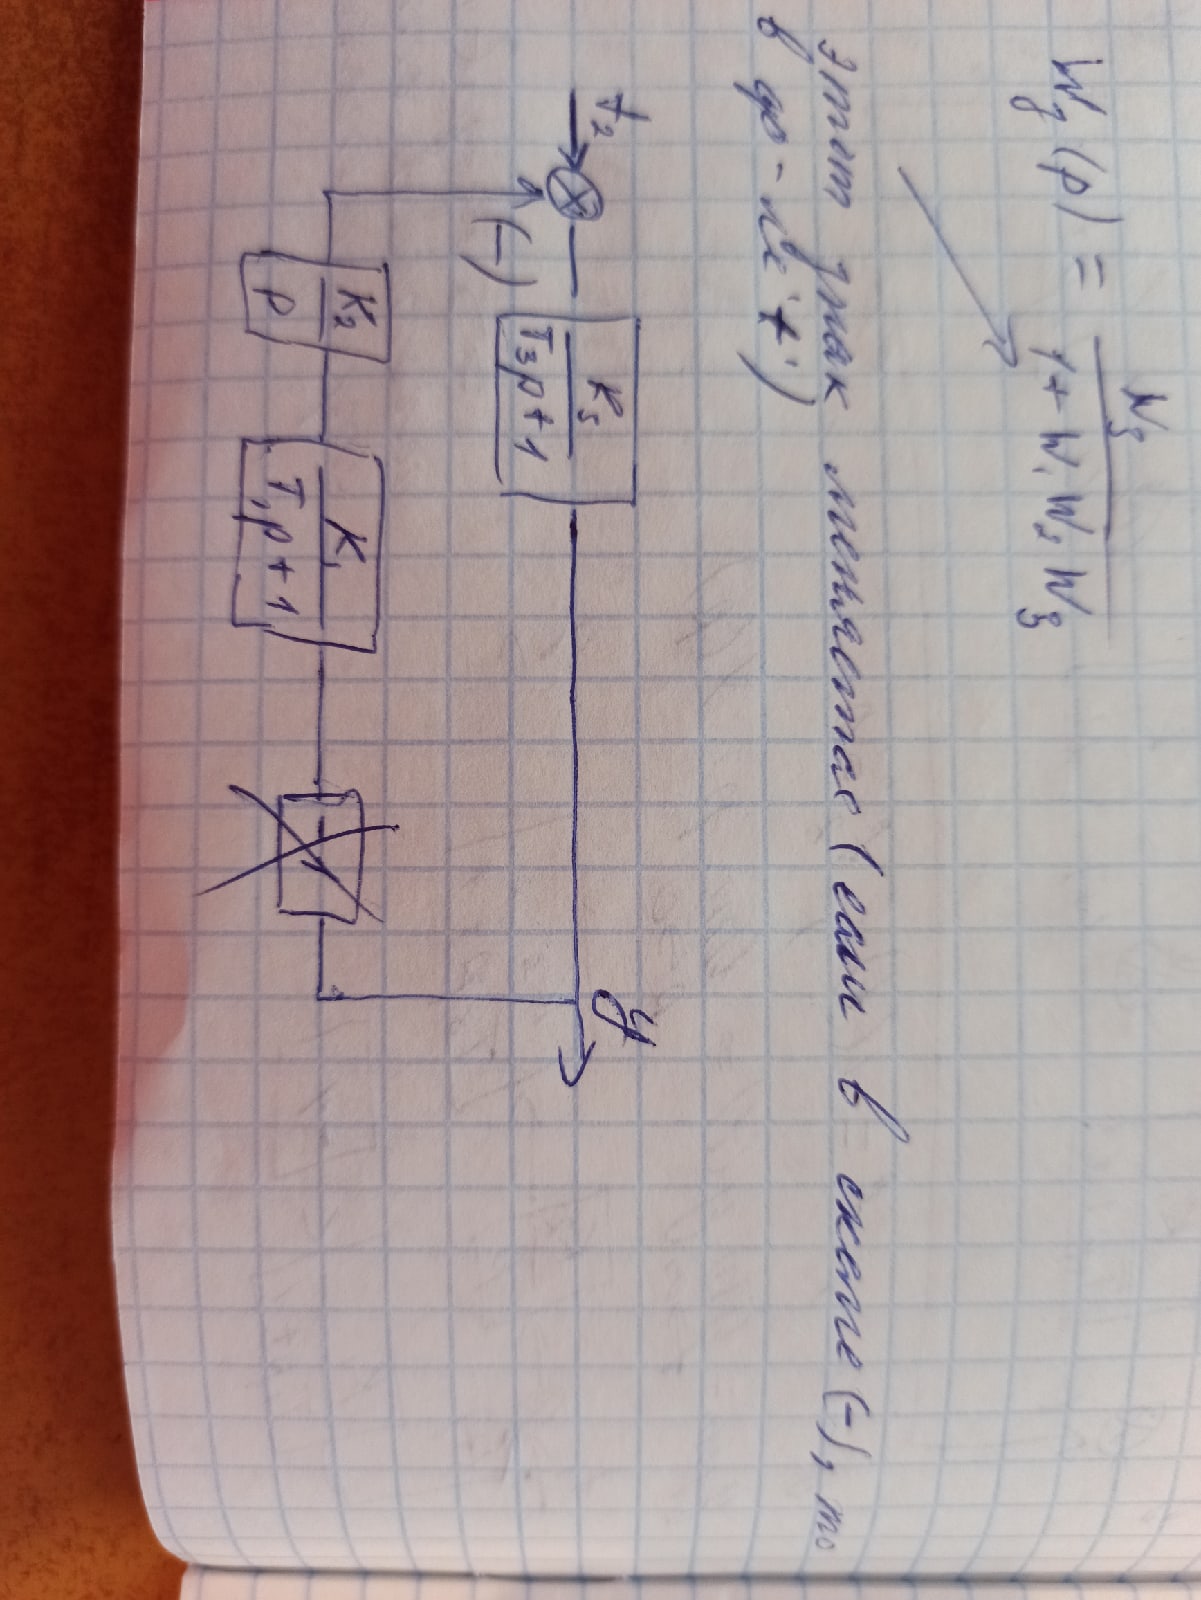 W_g(p) = W_3 / 1 + W_1 W_2 W_3
этот знак меняется (если в схеме (-), то
в ф-ле '+')
f_2
K_3 / T_3p+1
y
(-)
K_2 / p
K_1 / T_1p+1
-1